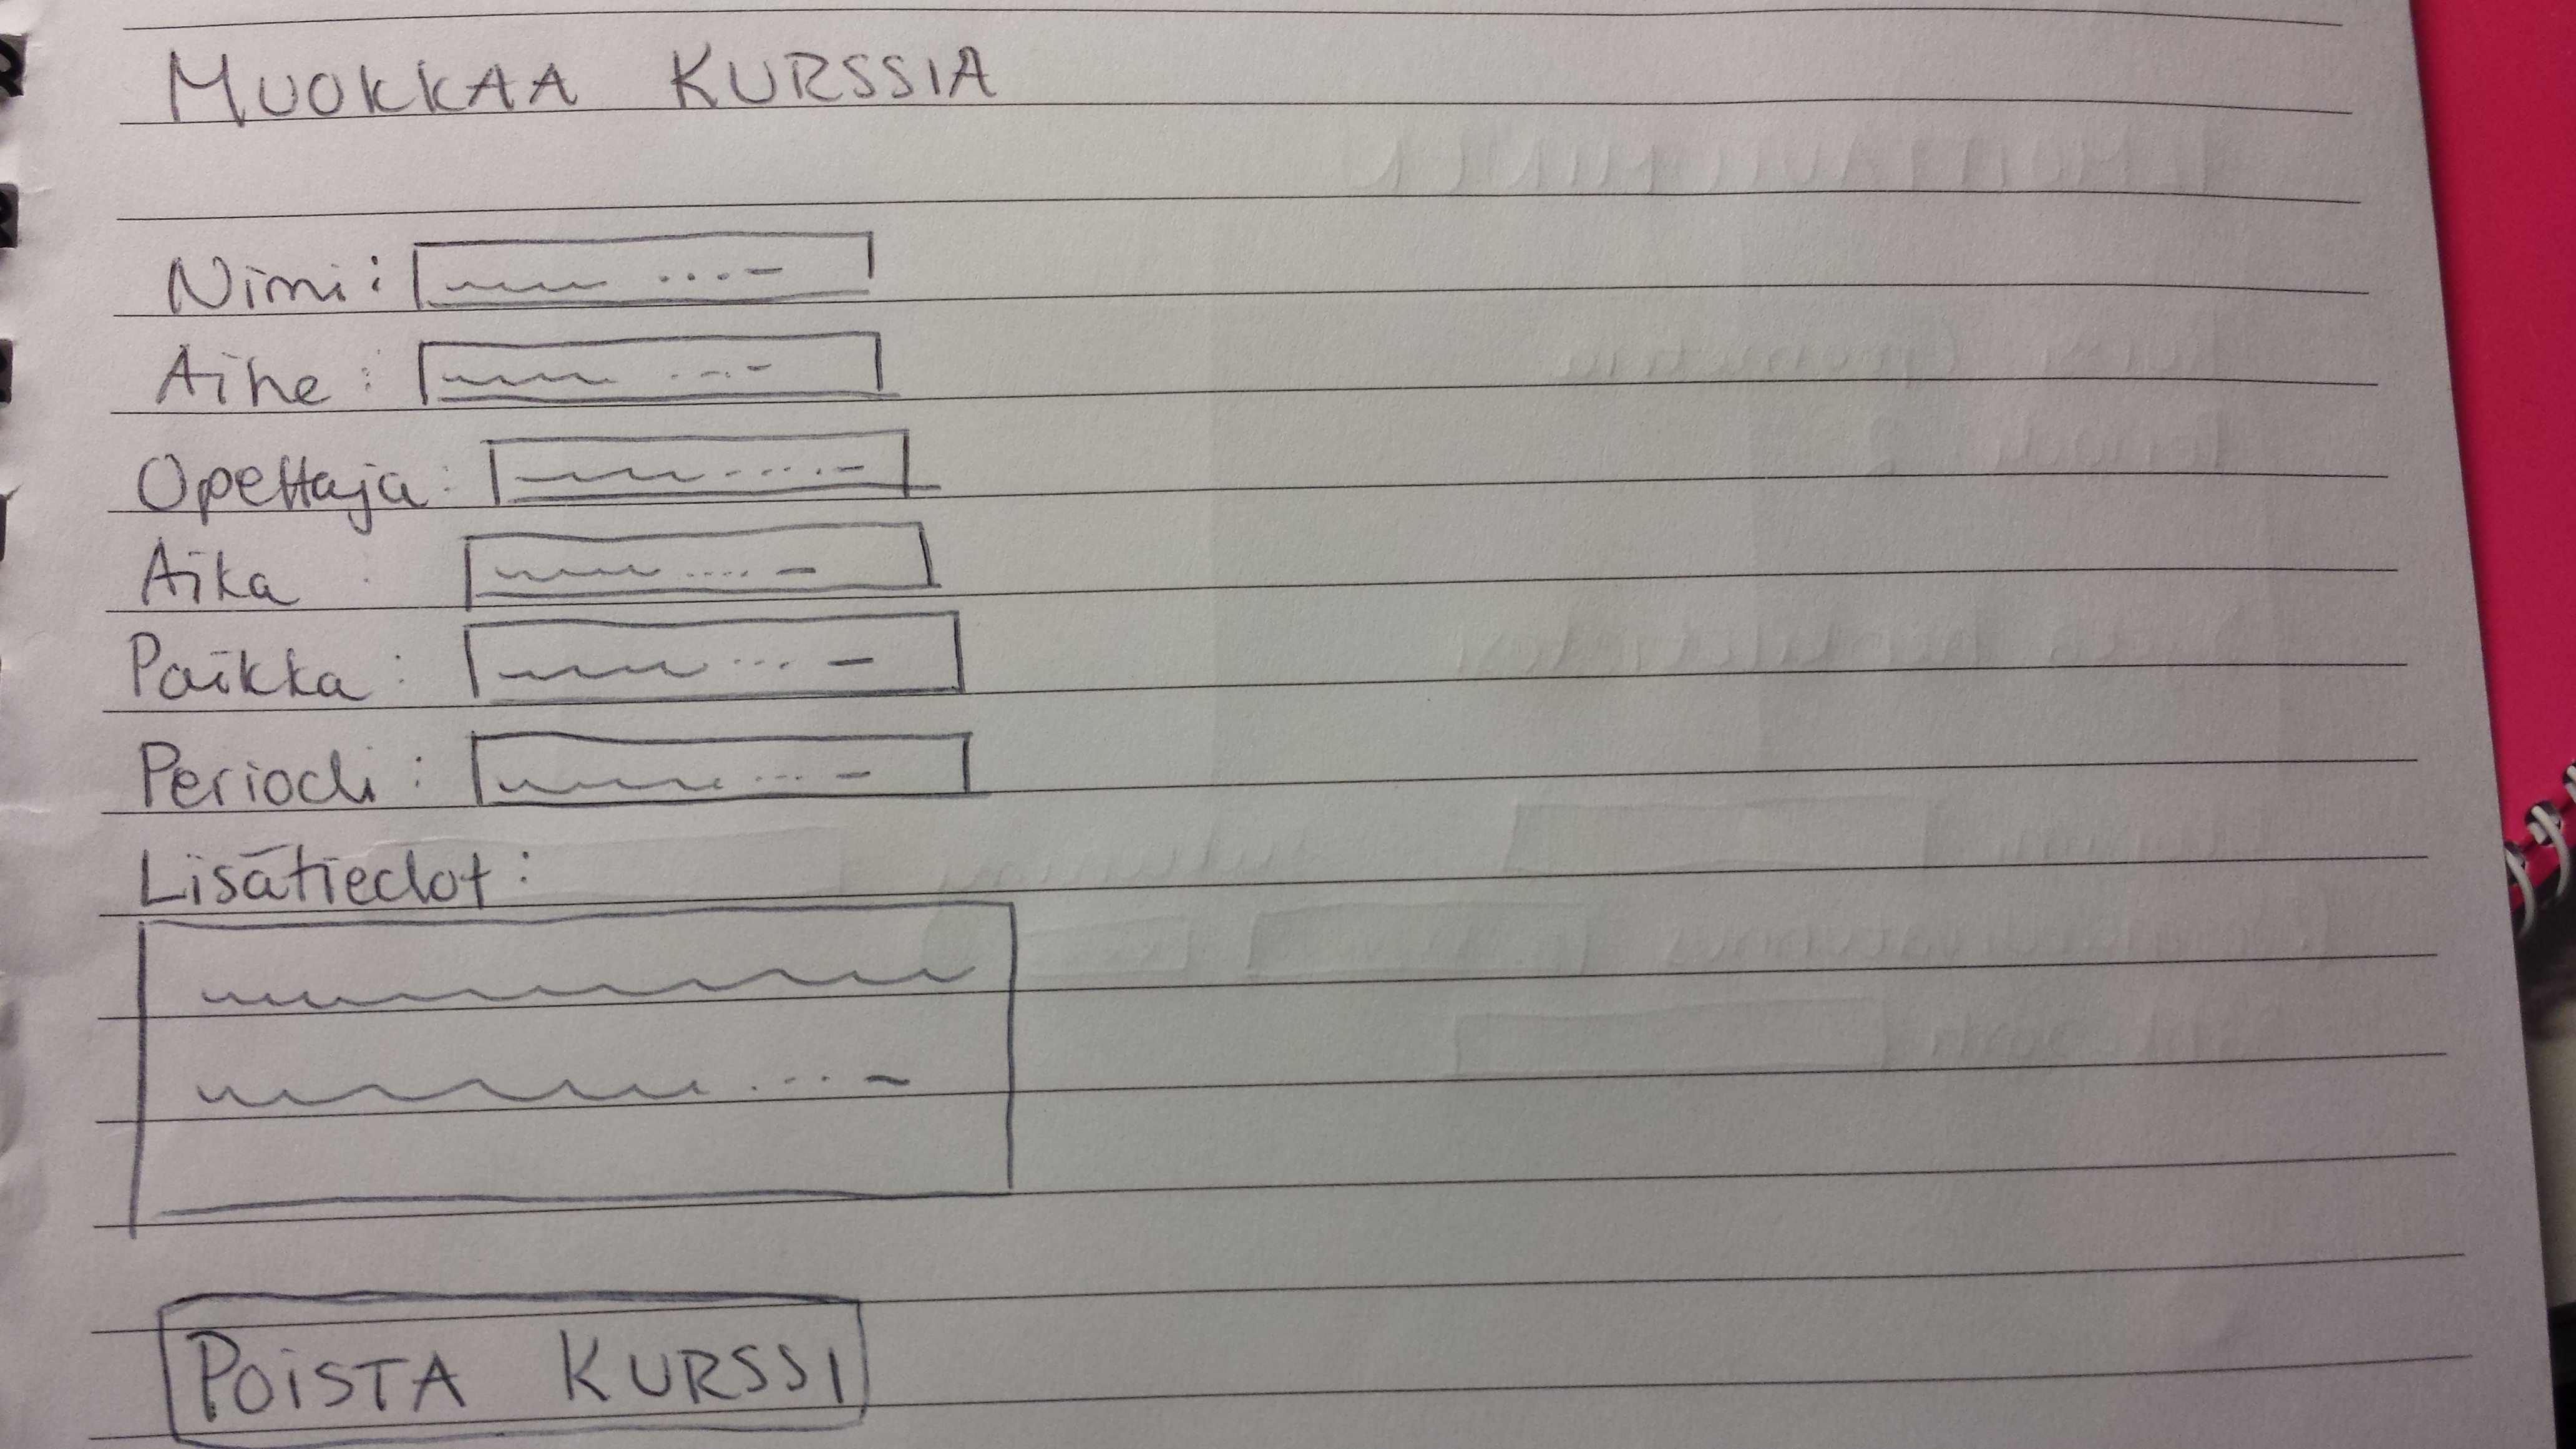 MUOKKAA KURSSIA
Nimi:
Aihe:
Opettaja:
Aika
Paikka:
Periodi:
Lisätiedot:
POISTA KURSSI